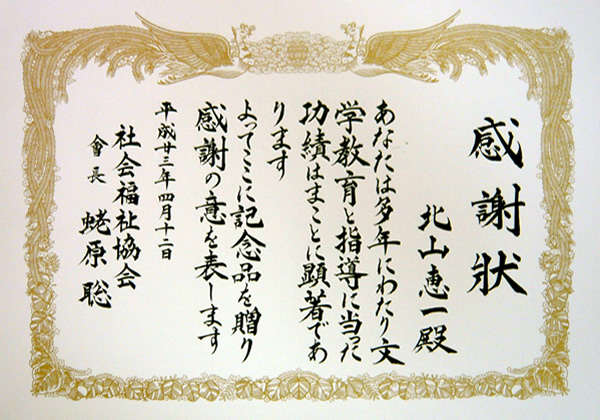 感謝狀
北山惠一殿
あなたは多年にわたり文
学教育と指導に当った
功績はまことに顕著であ
ります
よってここに記念品を贈り
感謝の意を表します
平成廿三年四月十二日
社会福祉協会
會長 蛯原聡